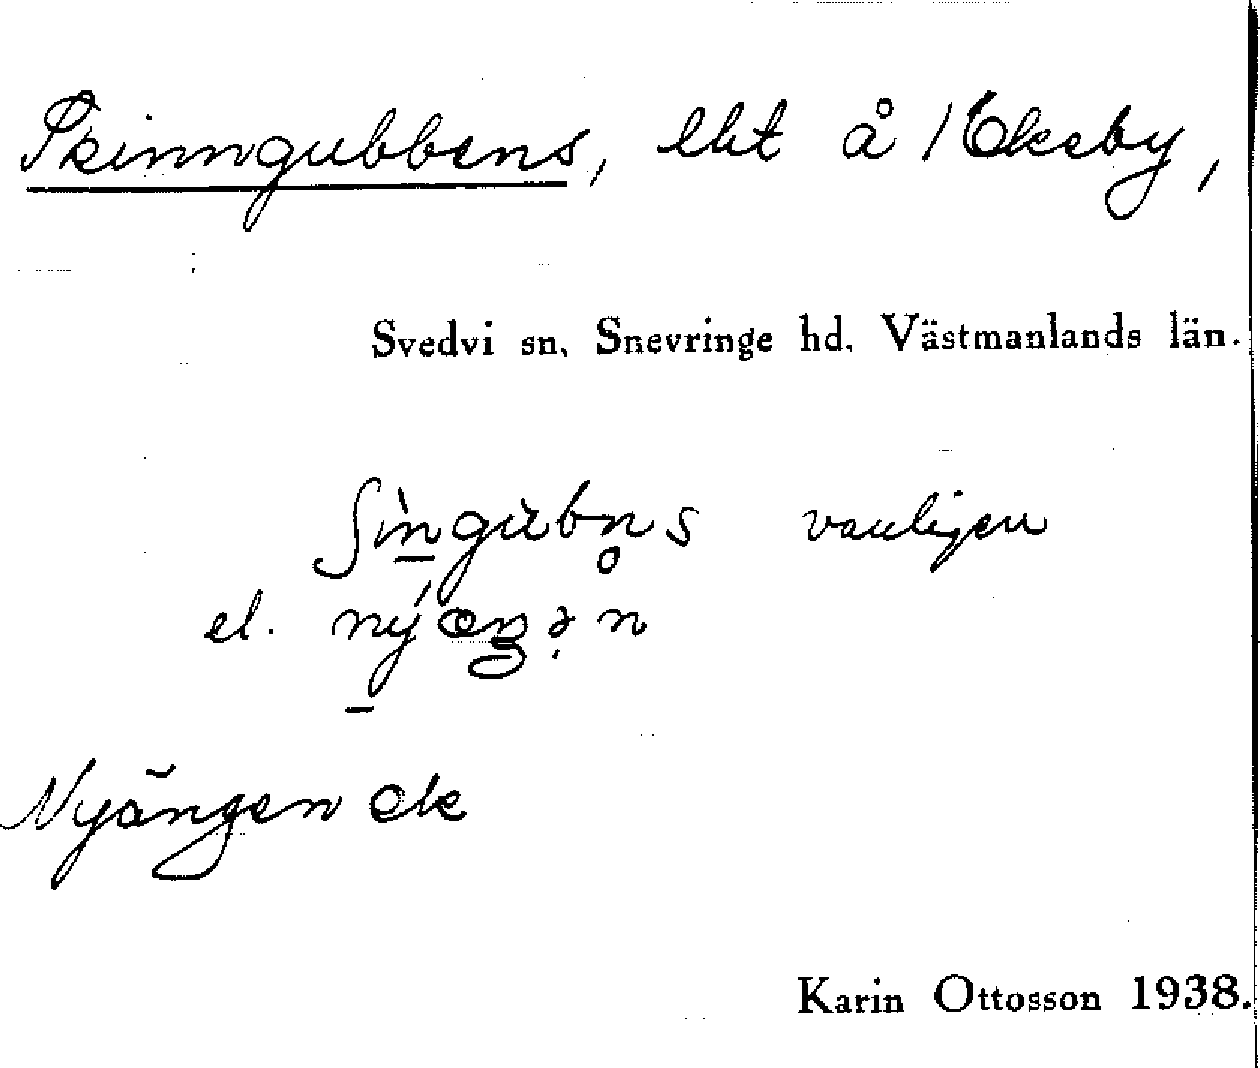 Skinngubbens, lht å 1 Ekeby,
Svedvi sn, Snevringe hd. Västmanlands län.
ʃìngùbn̥s vanligen
el. nýæŋən
Nyängen ek
Karin Ottosson 1938.